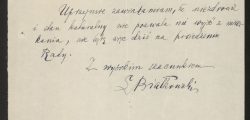 Uprzejmie zawiadamiam, że niezdrowie
i stan nie pozwala mi wyjść z miesz-
kania, aby być dziś na posiedzeniu
Rady.
Z wysokim szacunkiem